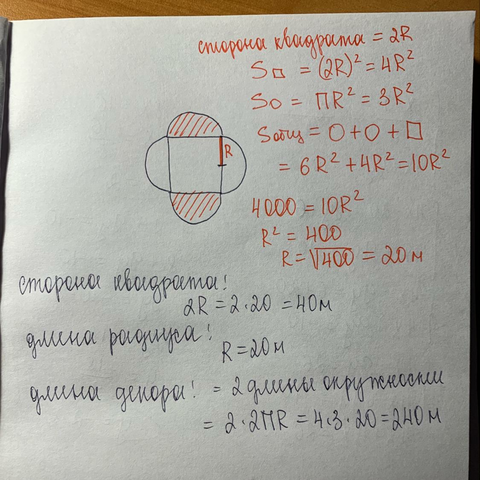 сторона квадрата = 2R
S□ = (2R)² = 4R²
S○ = ПR² = 3R²
Sобщ = ○ + ○ + □
= 6R² + 4R² = 10R²
R
4000 = 10R²
R² = 400
R = √400 = 20м
сторона квадрата!
2R = 2·20 = 40м
длина радиуса!
R = 20м
длина декора! = 2 длины окружности
= 2·2ПR = 4·3·20 = 240м